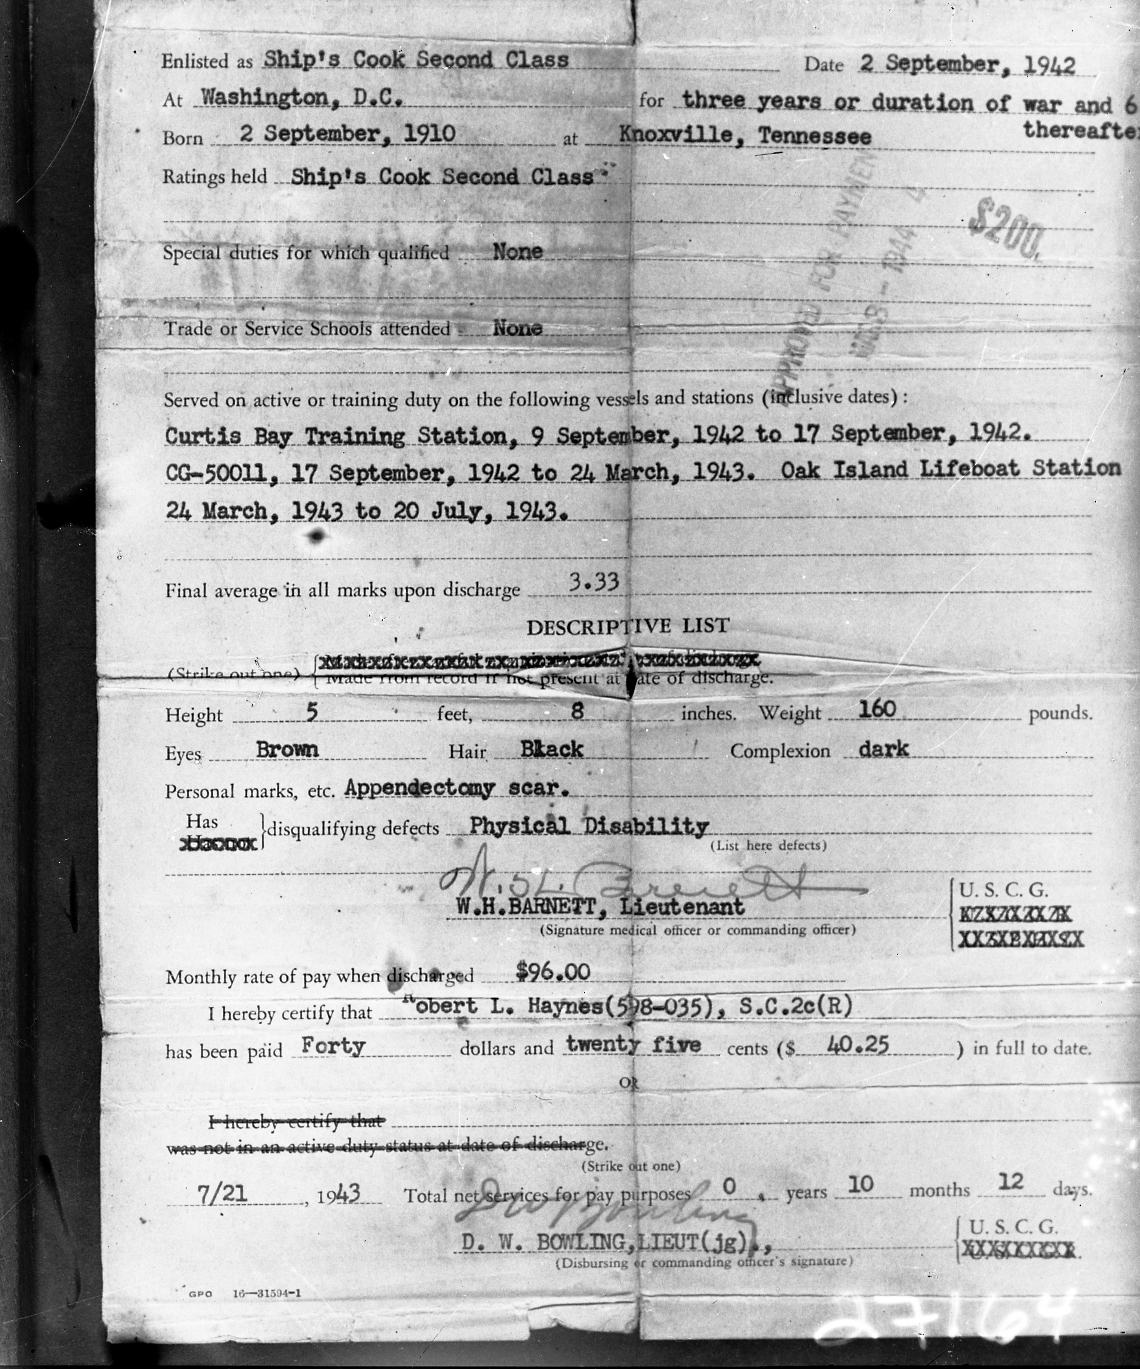 Enlisted as Ship's Cook Second Class Date 2 September, 1942
At Washington, D.C. for three years or duration of war and 6
Born 2 September, 1910 at Knoxville, Tennessee thereafter
Ratings held Ship's Cook Second Class
$200.
APPROVED FOR PAYMEN
1944 4
Special duties for which qualified None
Trade or Service Schools attended None
Served on active or training duty on the following vessels and stations (inclusive dates):
Curtis Bay Training Station, 9 September, 1942 to 17 September, 1942.
CG-50011, 17 September, 1942 to 24 March, 1943. Oak Island Lifeboat Station
24 March, 1943 to 20 July, 1943.
Final average in all marks upon discharge 3.33
DESCRIPTIVE LIST
(Strike out one) { Made from record if not present at date of discharge.
Height 5 feet, 8 inches. Weight 160 pounds.
Eyes Brown Hair Black Complexion dark
Personal marks, etc. Appendectomy scar.
Has } disqualifying defects Physical Disability
(List here defects)
W. H. Barnett
W.H.BARNETT, Lieutenant { U. S. C. G.
(Signature medical officer or commanding officer)
Monthly rate of pay when discharged $96.00
I hereby certify that Robert L. Haynes(598-035), S.C.2c(R)
has been paid Forty dollars and twenty five cents ($ 40.25 ) in full to date.
OR
I hereby certify that
was not in an active duty status at date of discharge.
(Strike out one)
7/21, 1943 Total net services for pay purposes 0, years 10 months 12 days.
D W Bowling
D. W. BOWLING, LIEUT(jg)., { U. S. C. G.
(Disbursing or commanding officer's signature)
GPO 16—31594-1
27164